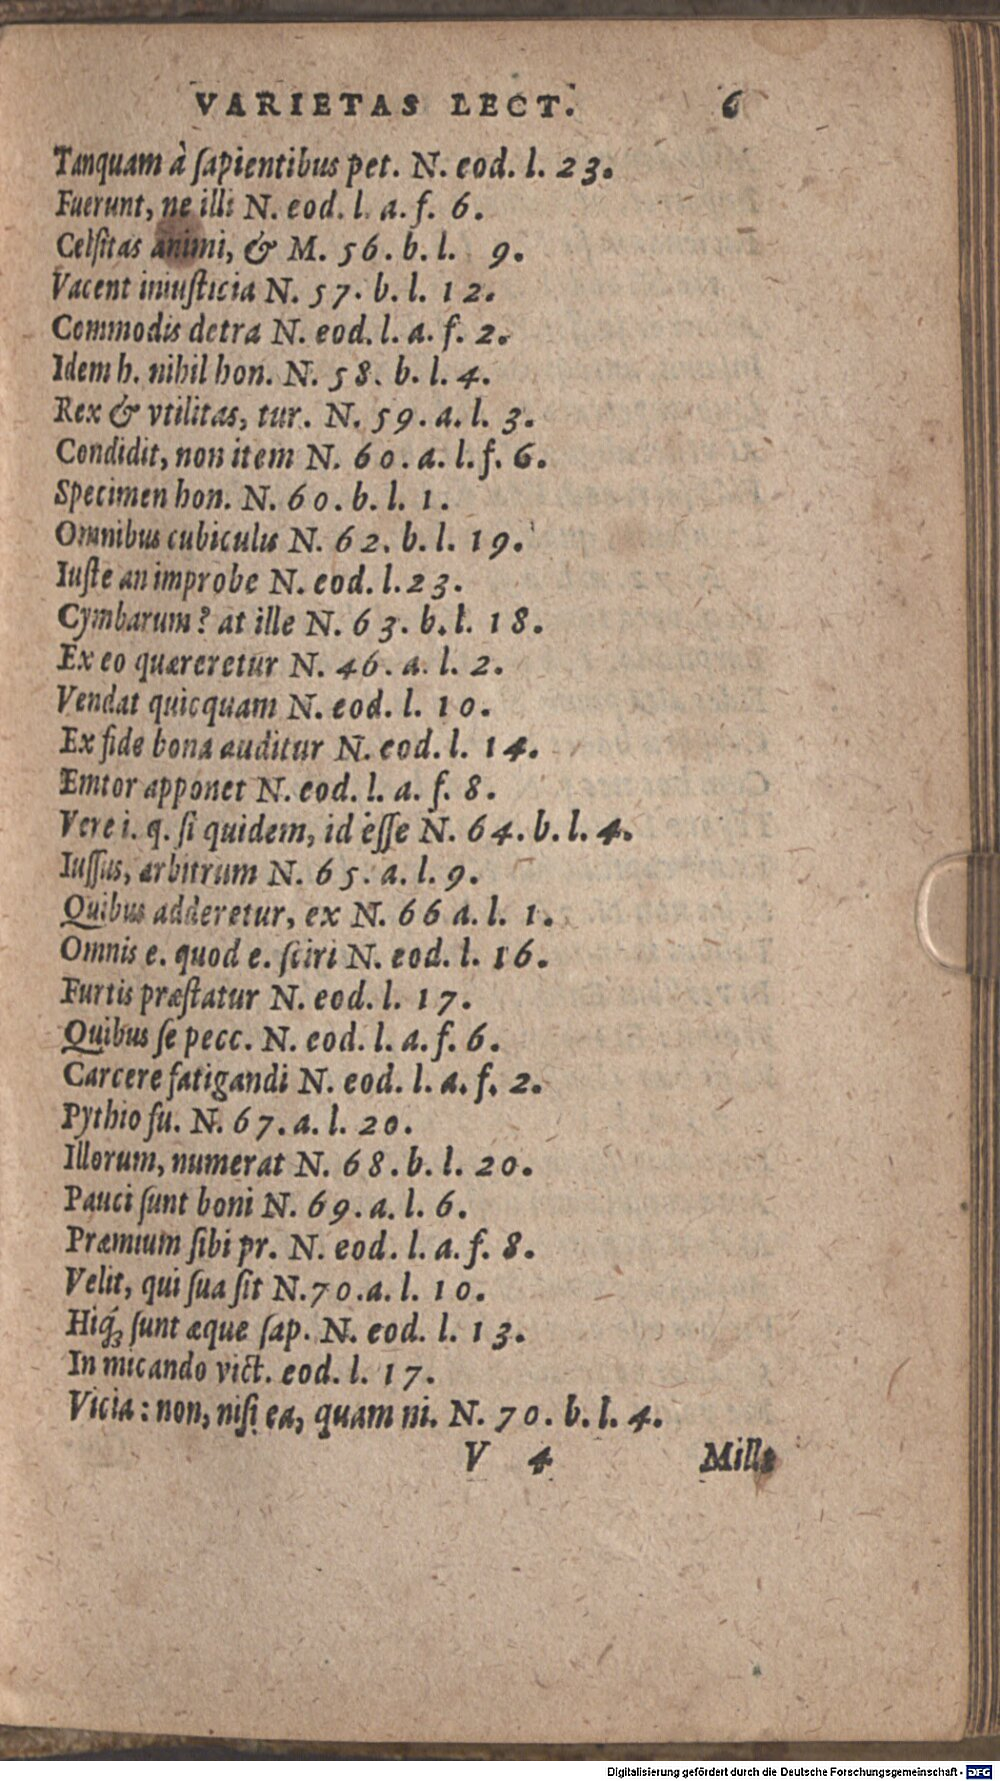 VARIETAS LECT. 6
Tanquam à ſapientibus pet. N. eod. l. 23.
Fuerunt, ne illi N. eod. l. a. f. 6.
Celſitas animi, & M. 56. b. l. 9.
Vacent iniuſticia N. 57. b. l. 12.
Commodis detra N. eod. l. a. f. 2.
Idem h. nihil hon. N. 58. b. l. 4.
Rex & vtilitas, tur. N. 59. a. l. 3.
Condidit, non item N. 60. a. l. f. 6.
Specimen hon. N. 60. b. l. 1.
Omnibus cubiculis N. 62. b. l. 19.
Iuſte an improbe N. eod. l. 23.
Cymbarum? at ille N. 63. b. l. 18.
Ex eo quæreretur N. 46. a. l. 2.
Vendat quicquam N. eod. l. 10.
Ex fide bona auditur N. eod. l. 14.
Emtor apponet N. eod. l. a. f. 8.
Vere i. q. ſi quidem, id eſſe N. 64. b. l. 4.
Iuſſus, arbitrum N. 65. a. l. 9.
Quibus adderetur, ex N. 66 a. l. 1.
Omnis e. quod e. ſciri N. eod. l. 16.
Furtis præſtatur N. eod. l. 17.
Quibus ſe pecc. N. eod. l. a. f. 6.
Carcere fatigandi N. eod. l. a. f. 2.
Pythio ſu. N. 67. a. l. 20.
Illorum, numerat N. 68. b. l. 20.
Pauci ſunt boni N. 69. a. l. 6.
Præmium ſibi pr. N. eod. l. a. f. 8.
Velit, qui ſua ſit N. 70. a. l. 10.
Hiq́ꝫ ſunt æque ſap. N. eod. l. 13.
In micando vict. eod. l. 17.
Vicia: non, niſi ea, quam ni. N. 70. b. l. 4.
V 4 Mille
Digitalisierung gefördert durch die Deutsche Forschungsgemeinschaft - DFG